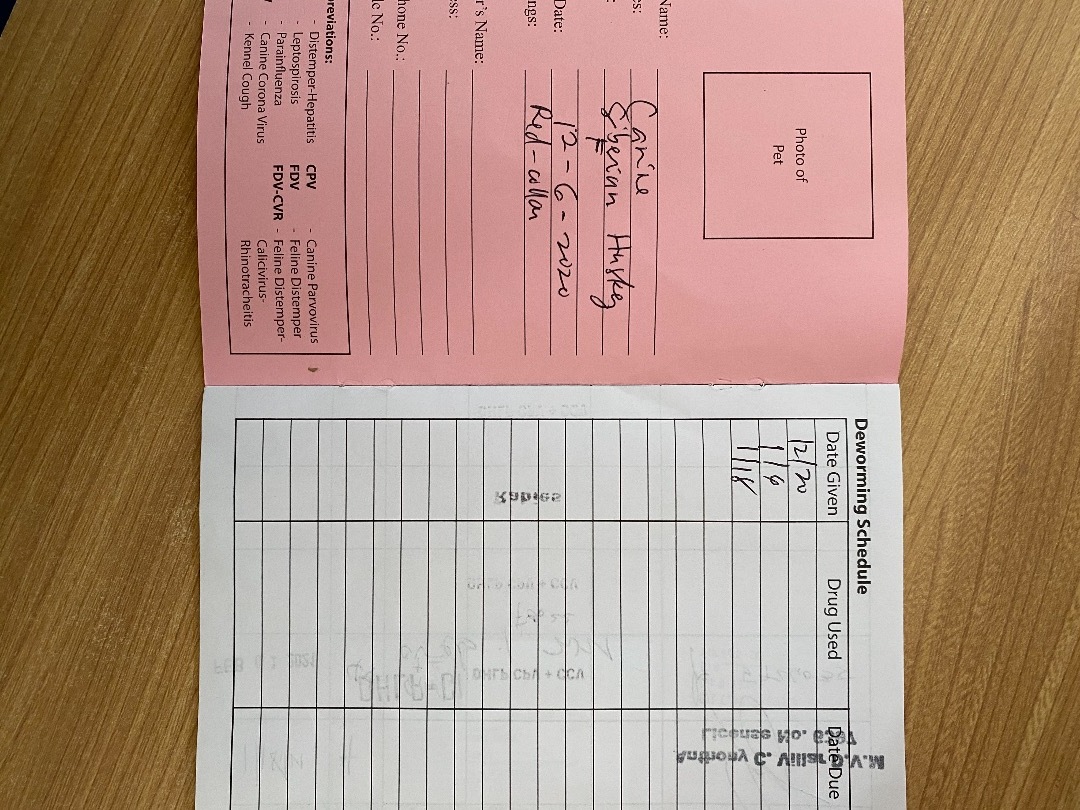 Photo of
Pet
Name:
es: Canine
Siberian Huskey
: F
Date: 12-6-2020
ngs: Red-collar
r's Name:
ss:
hone No.:
le No.:
reviations:
- Distemper-Hepatitis
- Leptospirosis
- Parainfluenza
- Canine Corona Virus
- Kennel Cough
CPV - Canine Parvovirus
FDV - Feline Distemper
FDV-CVR - Feline Distemper-
Calicivirus-
Rhinotracheitis
Deworming Schedule
Date Given Drug Used Date Due
12/20
1/6
1/18
Rabies
DHLP CPV + CCV
FEB 0 1 2021
DHLP CPV + CCV
Anthony C.
M.V.
License No.